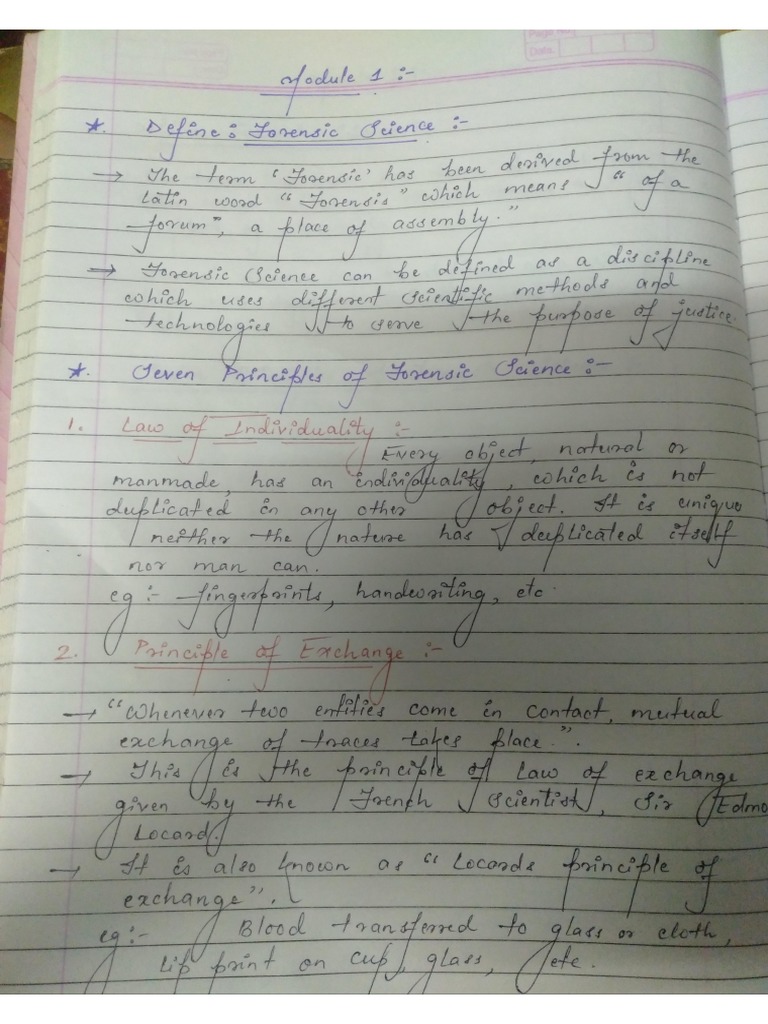 Module 1 :-
*. Define : Forensic Science :-
→ The term 'Forensic' has been derived from the
Latin word "Forensis" which means "of a
forum", a place of assembly."
→ Forensic Science can be defined as a discipline
which uses different scientific methods and
technologies to serve the purpose of justice.
*. Seven Principles of Forensic Science :-
1. Law of Individuality :-
Every object, natural or
manmade, has an individuality, which is not
duplicated in any other object. It is unique
neither the nature has duplicated itself
nor man can.
eg :- fingerprints, handwriting, etc.
2. Principle of Exchange :-
→ "Whenever two entities come in contact, mutual
exchange of traces takes place.".
→ This is the principle of Law of exchange
given by the French Scientist, Sir Edmo
Locard.
→ It is also known as "Locards principle of
exchange".
eg :- Blood transferred to glass or cloth,
Lip print on cup, glass, etc.